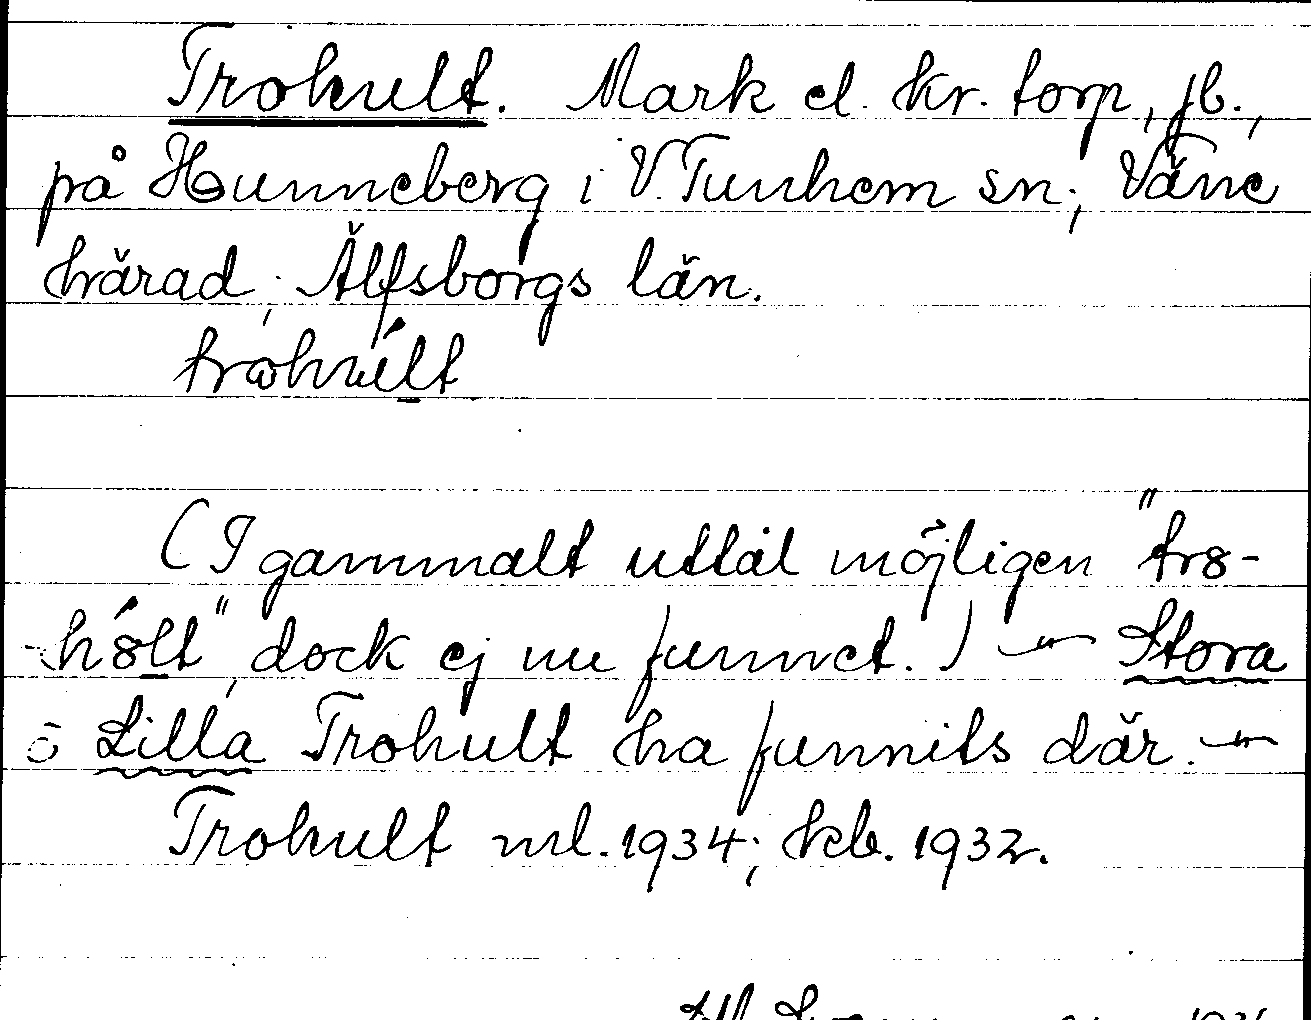 Trohult. Mark el. kr. torp, jb.,
på Hunneberg i V. Tunhem sn; Väne
härad; Älfsborgs län.
trωhúlt
(I gammalt uttal möjligen "tr8-
-h8́lt", dock ej nu funnet.) — Stora
o Lilla Trohult ha funnits där. —
Trohult ml. 1934; kb. 1932.